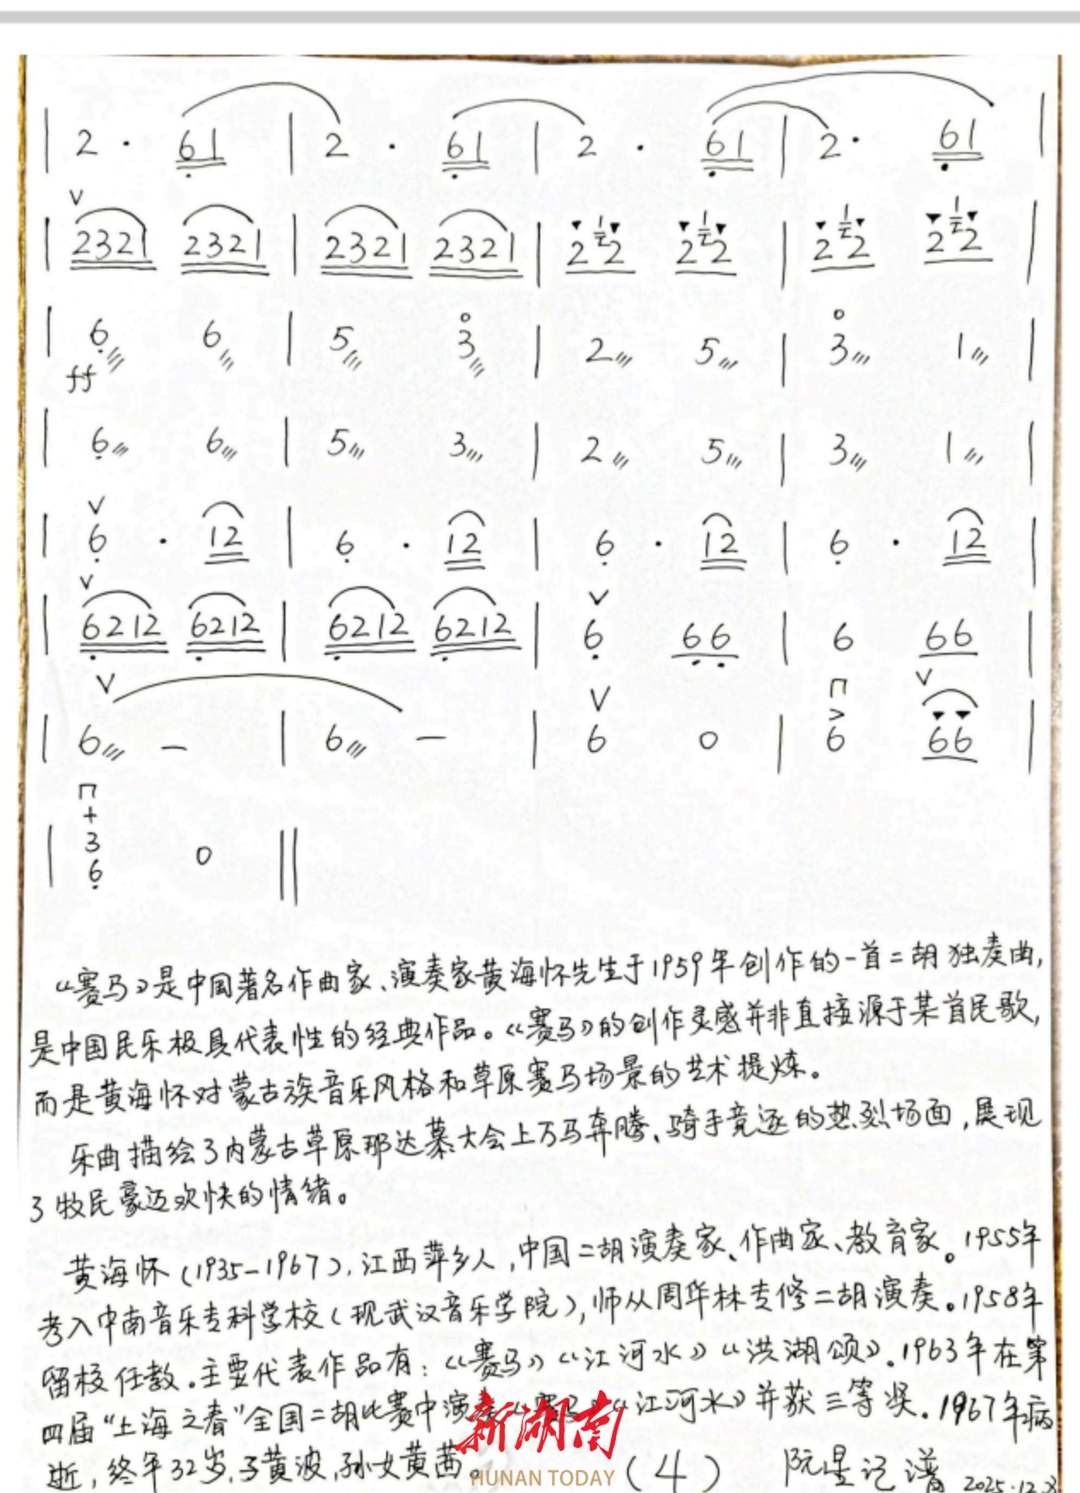 | 2 · 61 | 2 · 61 | 2 · 61 | 2 · 61 |
| 2321 2321 | 2321 2321 | 2 2 2 2 | 2 2 2 2 |
| 6 6 | 5 3 | 2 5 | 3 1 |
ff
| 6 6 | 5 3 | 2 5 | 3 1 |
| 6 · 12 | 6 · 12 | 6 · 12 | 6 · 12 |
| 6212 6212 | 6212 6212 | 6 66 | 6 66 |
| 6 — | 6 — | 6 0 | 6 66 |
+
3
| 6 0 ||
《赛马》是中国著名作曲家、演奏家黄海怀先生于1959年创作的一首二胡独奏曲,
是中国民乐极具代表性的经典作品。《赛马》的创作灵感并非直接源于某首民歌,
而是黄海怀对蒙古族音乐风格和草原赛马场景的艺术提炼。
乐曲描绘了内蒙古草原那达慕大会上万马奔腾、骑手竞逐的热烈场面,展现
了牧民豪迈欢快的情绪。
黄海怀(1935-1967),江西萍乡人,中国二胡演奏家、作曲家、教育家。1955年
考入中南音乐专科学校(现武汉音乐学院),师从周华林专修二胡演奏。1958年
留校任教。主要代表作品有:《赛马》《江河水》《洪湖颂》。1963年在第
四届"上海之春"全国二胡比赛中演奏《赛马》《江河水》并获三等奖。1967年病
逝,终年32岁,子黄波,孙女黄茜。
新湖南
HUNAN TODAY
(4) 阮星记谱 2025.12.